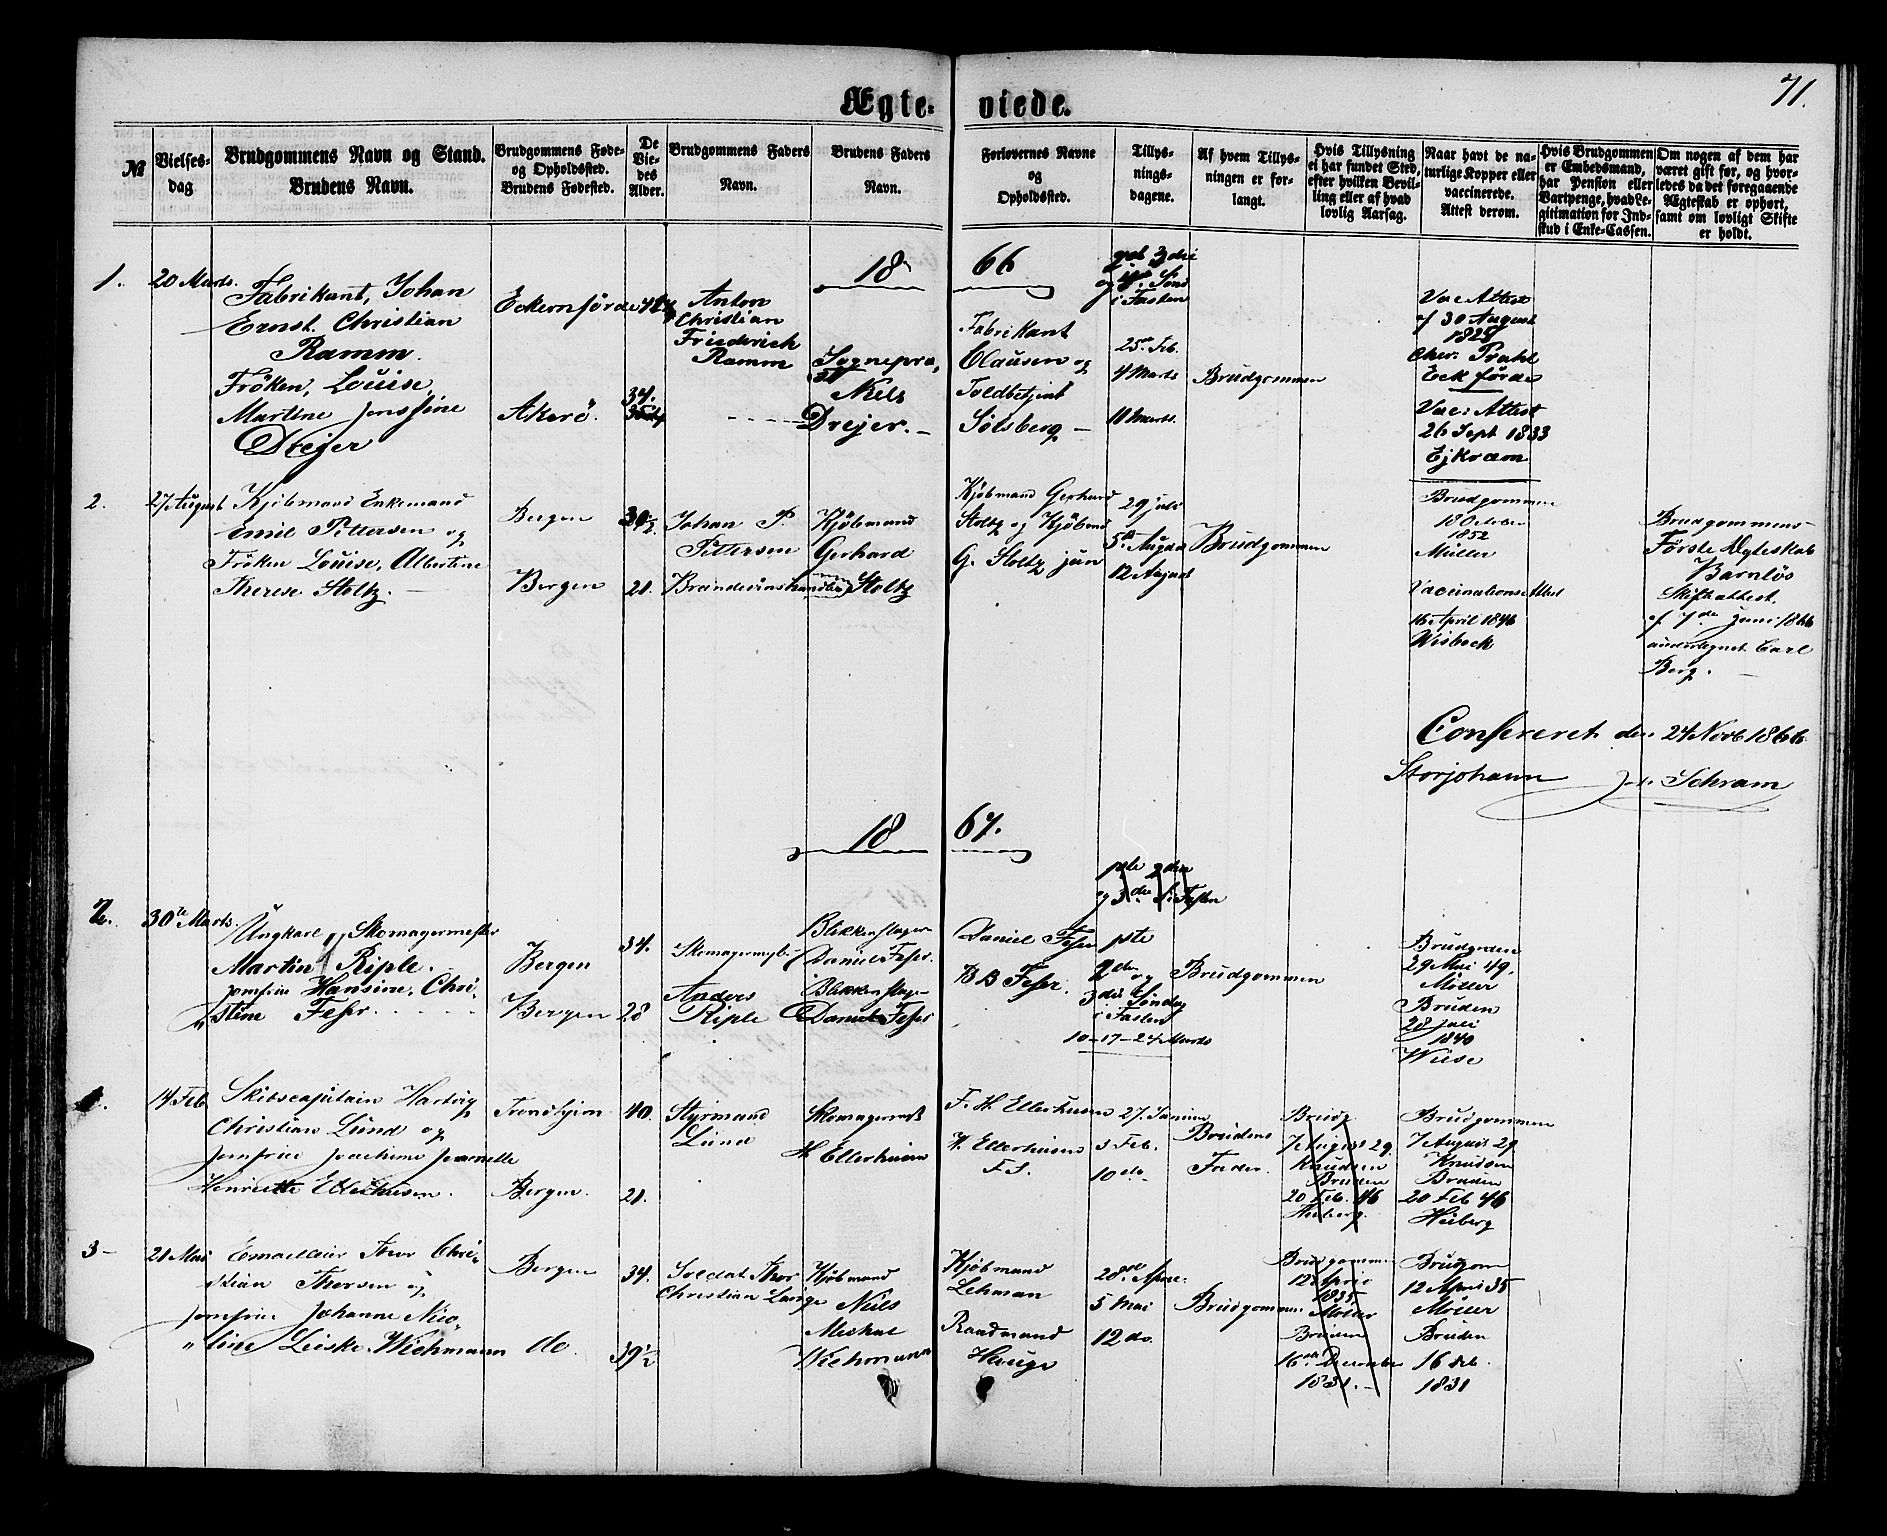 71.
Ægteviede.
№
Vielses-
dag
Brudgommens Navn og Stand.
Brudens Navn.
Brudgommens Føde-
og Opholdssted.
Brudens Fødested.
De
Vie-
des
Alder.
Brudgommens Faders
Navn.
Brudens Faders
Navn.
Forlovernes Navne
og
Opholdssted.
Tillys-
nings-
dagene.
Af hvem Tillys-
ningen er for-
langt.
Hvis Tillysning
ei har fundet Sted,
efter hvilken Bevil-
ling eller af hvad
lovlig Aarsag.
Naar havt de na-
turlige Kopper eller
vaccinerede.
Attest derom.
Hvis Brudgommen
er Embedsmand,
har Pension eller
Vartpenge, hvad Le-
gitimation for Ind-
skud i Enke-Cassen.
Om nogen af dem har
været gift før, og hvor-
ledes da det foregaaende
Ægteskab er ophørt,
samt om lovligt Skifte
er holdt.
18 66
1.
20 Marts.
Fabrikant, Johan
Ernst Christian
Ramm.
Fröken, Louise
Martine Jensine
Dreyer
Eckernförde
Akerö.
34.
Anton
Christian
Friederich
Ramm
Sognepræ,
st
Niels
Drejer.
Fabrikant
Clausen og
Toldbetjent
Solsberg
3die
i Fasten
25de Feb.
4 Marts
11 Marts.
Brudgommen
Vac Attest
af 30 August
Eckförde
Vac: Attest
26 Sept 1833
2.
27 August
Kjöbmand Enkemand
Emil Pettersen og
Fröken Louise, Albertine
Therese Stoltz.
Bergen
Bergen
30½
21.
Johan P.
Pettersen
Brændevinshandler
Kjöbmand
Gerhard
Stoltz
Kjöbmand Gerhard
Stoltz og Kjöbmd
G. Stoltz jun
29 juli
5te August
12 August
Brudgommen
Brudgommen
18 October
1852
Müller
Vaccinations Attest
16 April 1846
Wisbeck
Brudgommens
Förste Ægteskab
Barnlös
Skifteattest
af 7de Juni 1866
undertegnet Carl
Berg.
Confereret den 24 Novb 1866
Storjohann
Schram
18 67.
2.
30te Marts.
Ungkarl, Skomagermester
Martin Riple.
jomfru Hansine, Chri-
„stine Feser
Bergen
Bergen
34.
28
Skomagermstr
Anders
Riple
Blikkenslager
Daniel Feser.
Blikkenslager
Daniel Feser
Daniel Feser
B B Feser.
1ste 2den
og 3die S. i Fasten
1ste
2den og
3die Söndag
i Fasten
10-17-24 Marts
Brudgommen
Brudgommen
29 Mai 49.
Möller
Bruden
28 juli
1840
Wiese
1.
14 Feb
Skibscapitain Hartvig
Christian Lund og
jomfru Joachime Jeannette
Henriette Ellerhusen.
Trondhjem
Bergen.
40.
21.
Styrmand
Lund
Skomagermstr
H Ellerhusen
F. H Ellerhusen
H. Ellerhusen
27. Januar
3 Feb.
10 do
Brudens
Fader.
Brudg.
7 August 29.
Knudsen
Bruden
20 Feb. 46
Heiberg.
Brudgommen
7 August 29
Knudsen
Bruden
20 Feb 46
Heiberg
3-
21 Mai
Emaelleur Thor Chri-
stian Thorsen og
jomfru Johanne Nico-
„line Leiske Wiehmann
Bergen
do.
34.
39½
Soldat Thor
Christian Lange
Kjöbmand
Niels
Wiehmann
Kjöbmand
Lehman
Raadmand
Hauge
28de April
5 Mai
12 do.
Brudgommen
Brudgommen
12 April
1835
Möller
Bruden
16de December
1831.
Brudgom
12 April 35
Möller
Bruden
16 Deb.
1831